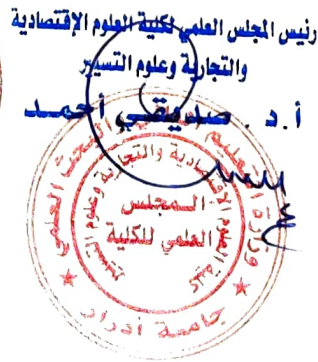 رئيس المجلس العلمي لكلية العلوم الإقتصادية
والتجارية وعلوم التسيير
أ.د. صديقي أحمد
وزارة التعليم العالي والبحث العلمي
كلية العلوم الاقتصادية والتجارية وعلوم التسيير
المجلس
العلمي للكلية
جامعة أدرار